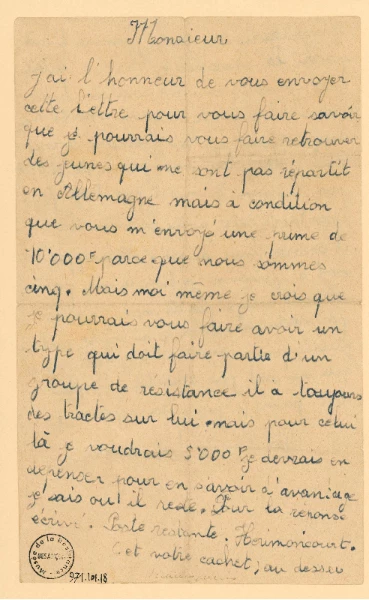 Monsieur
j'ai l'honneur de vous envoyer
cette lettre pour vous faire savoir
que je pourrais vous faire retrouver
des jeunes qui ne sont pas répartit
en Allemagne mais à condition
que vous m'envoyé une prime de
10'000F parce que nous sommes
cinq. Mais moi même je crois que
je pourrais vous faire avoir un
type qui doit faire partie d'un
groupe de résistance il à toujours
des tractes sur lui. mais pour celui
là je voudrais 5'000F je devrais en
dépenser pour en savoir d'avantage
je sais ou! il reste. Pour la réponse
écrivé. Poste restante. Hérimoncourt.
et votre cachet; au dessu
Musée de la Résistance
BESANÇON
971.101.18